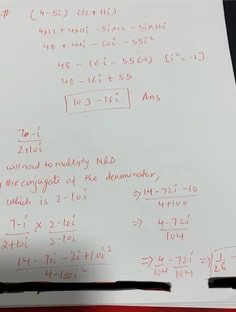 # (4-5i) (12+11i)
4x12 + 4x11i - 5ix12 - 5ix11i
48 + 44i - 60i - 55i²
48 - 16i - 55(-1) [i² = -1]
48 - 16i + 55
103 - 16i Ans
7-i
2+10i
will need to multiply N&D
the conjugate of the denominator,
which is 2-10i
7-i x 2-10i
2+10i 2-10i
14 - 70i - 2i + 10i²
4 - 100i²
⇒ 14 - 72i - 10
4 + 100
⇒ 4 - 72i
104
⇒ 4 - 72i ⇒ 1
104 104 26